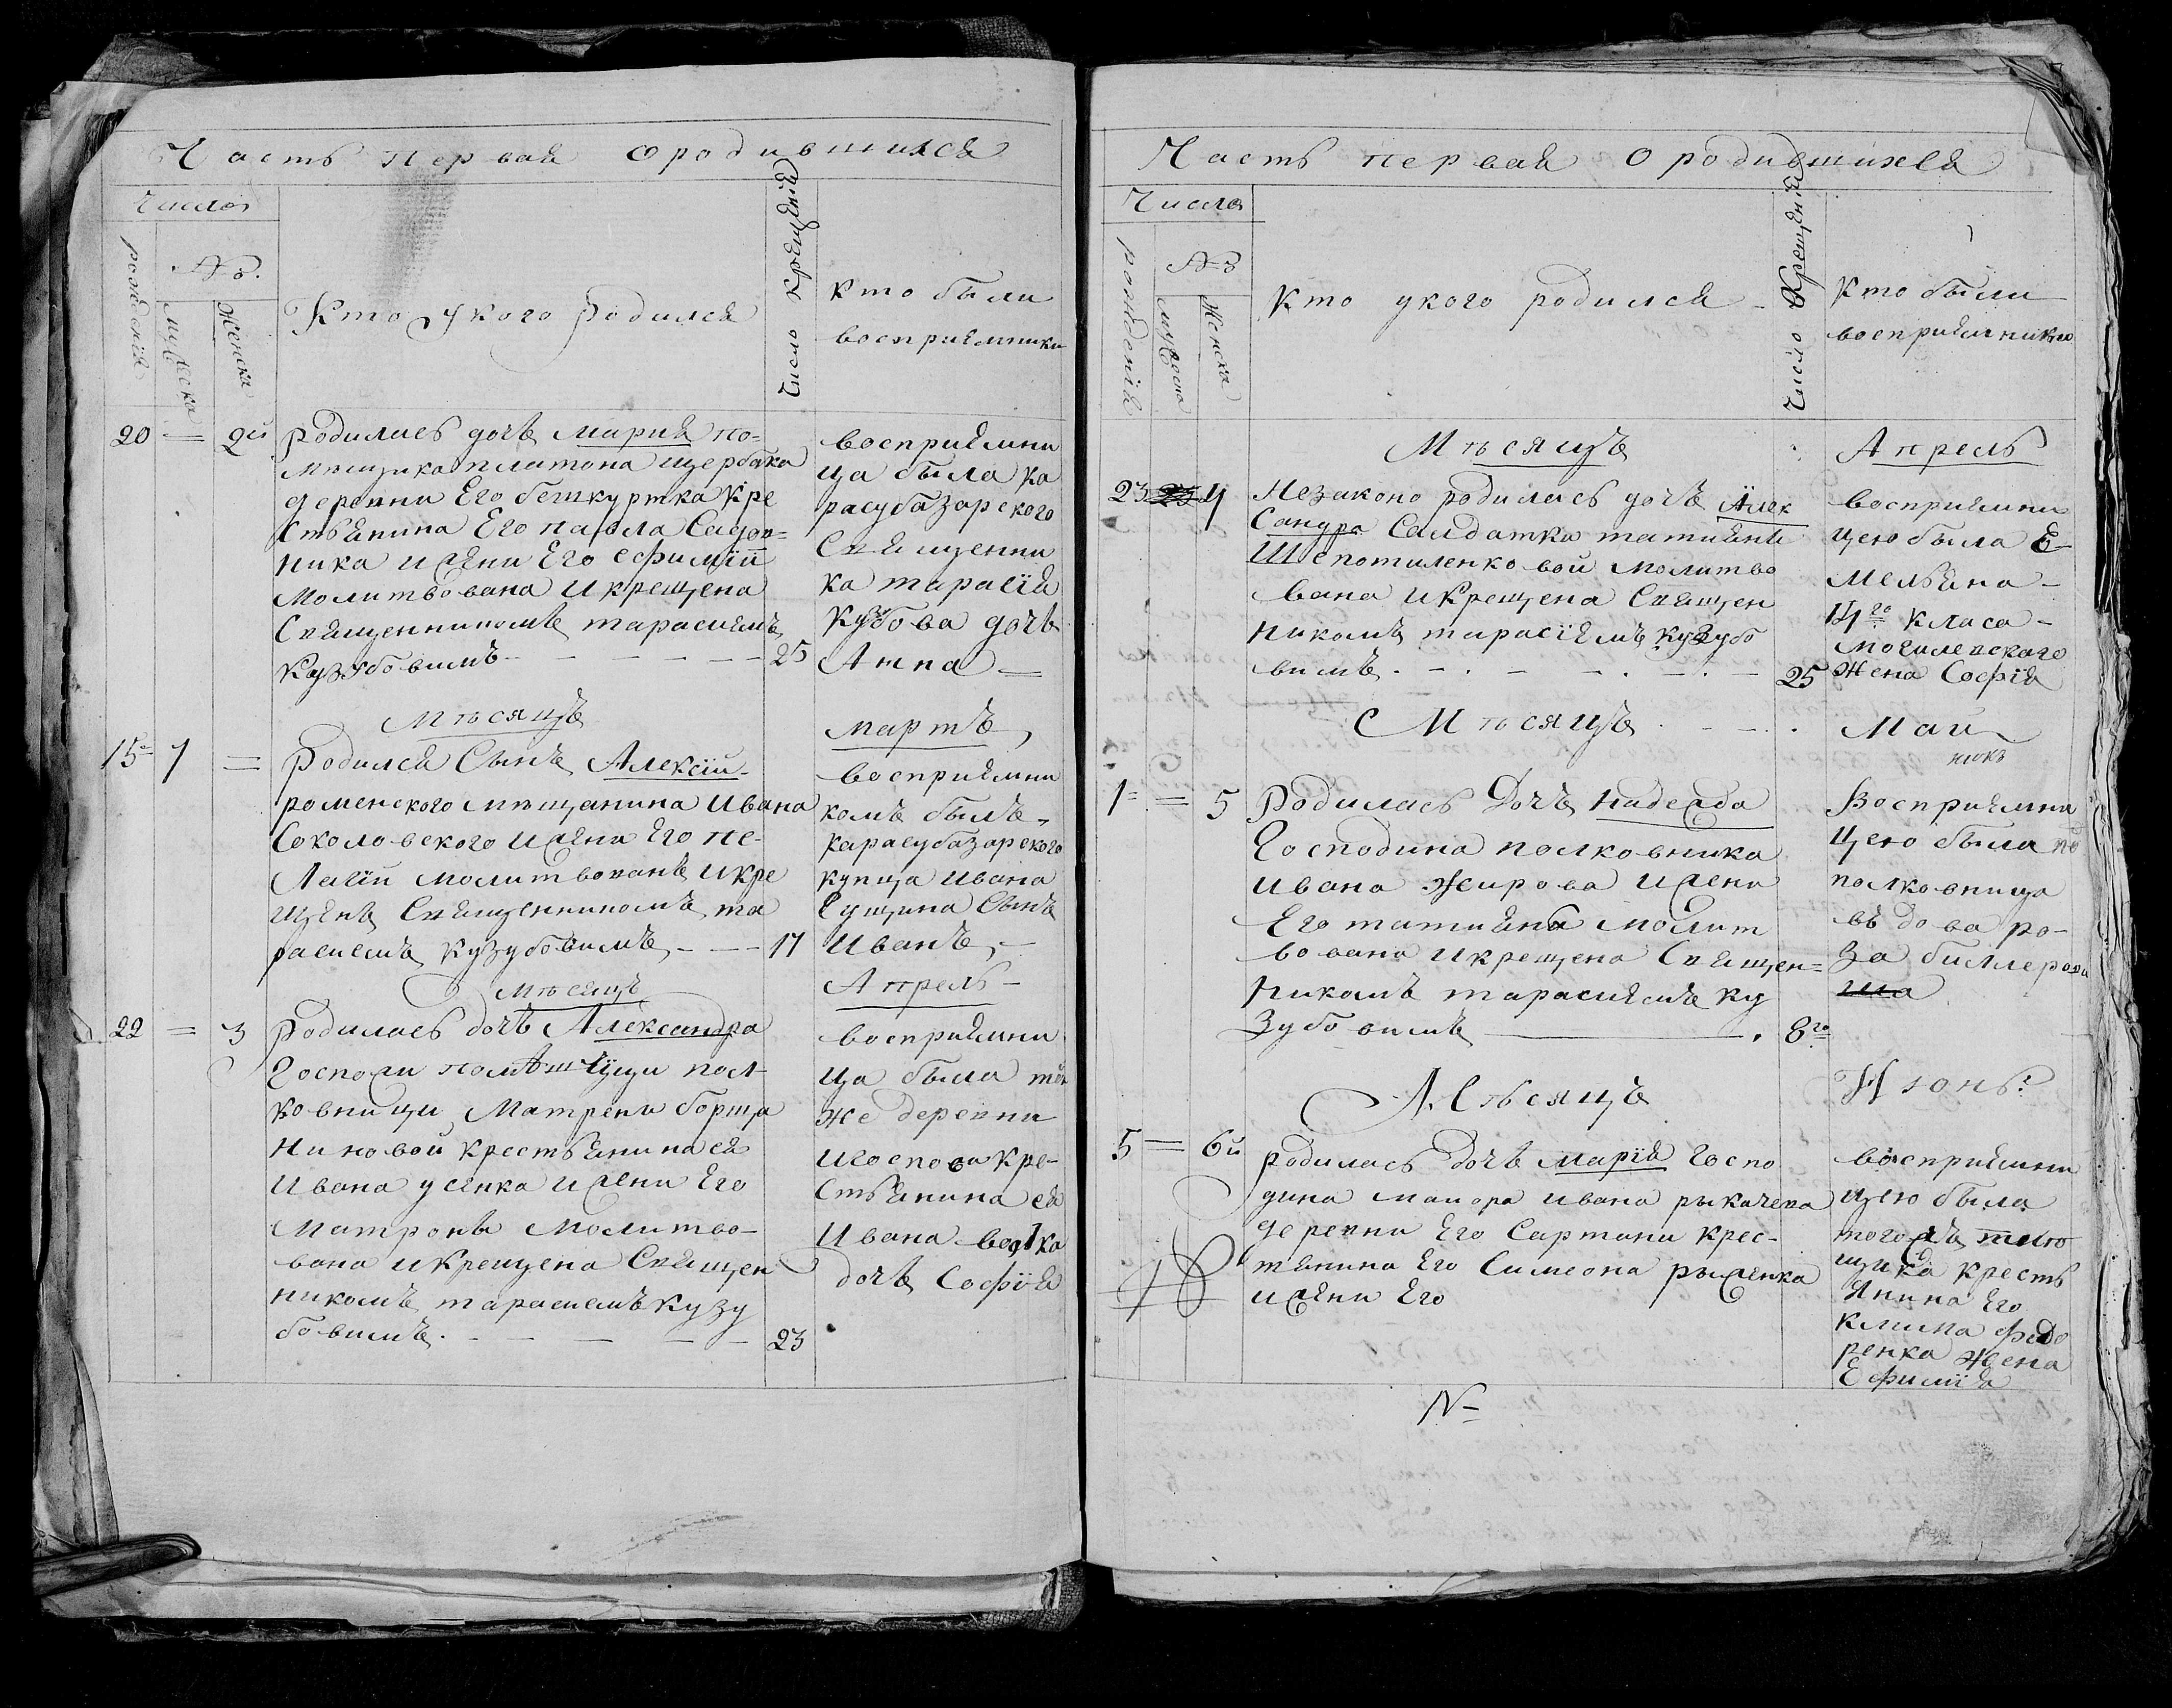 Часть первая о родившихся
Число
рождения
№
мужеска
Женска
Кто у кого родился
Число крещения
Кто были
восприемники
20 = 2й
родилась дочь мария по=
мещика платона щербака
деревни Его бешкуртка кре
Стьянина Его павла Садов=
ника и жены Его ефимiи
молитвована и крещена
Священникомъ тарасиемъ
Кузубовимъ 25
восприемни
ца была ка
расубазарского
Священни
ка тарасiя
Кузубова дочь
Анна
Мѣсяцъ
мартъ
15 1 =
родился Сынъ Алексiй
роменского мѣщанина Ивана
Соколовского и жени Его пе-
лагiи молитвованъ и кре
щенъ Священникомъ та
расиемъ кузубовимъ 17
восприемни
комъ былъ
карасубазарского
купца Ивана
Сущина Сынъ
Иванъ
Мѣсяцъ
Апрель
22 = 3
родилась дочь Александра
Госпожи помѣщици пол-
ковници Матрени борща
ниновой крестьянина ея
Ивана усенка и жени Его
Матроны молитво-
вана и крещена Священ
никомъ тарасиемъ кузу
бовимъ 23
восприемни
ца была той
же деревни
и госпожи кре-
стьянина ея
Ивана
дочь Софiя
Часть первая о родившихся
Числа
рождения
№
мужеска
Женска
Кто у кого родился
Число Крещения
Кто были
восприемники
Мѣсяцъ
Апрель
23 4
Незаконо родилась дочь Алек
Сандра Салдатка татияни
Шепотиленковой молитво
вана и крещена Священ
никомъ тарасiемъ кузубо
вимъ 25
восприемни
цею была Е
мельяна
14го класа
могилевскаго
жена Софiя
Мѣсяцъ
Маи
1 = 5
родилась дочь надежда
Господина полковника
Ивана Жирова и жени
Его татияны молит
вована и крещена Священ=
никомъ тарасиемъ ку
зубовимъ 8го
восприемни
цею была по
полковница
въдова ро-
за биллеро
Мѣсяцъ
Июнь
5 = 6й
родилась дочь марiя госпо
дина маиора ивана рыкачева
деревни Его Сартани крес-
тянина Его Симеона рыженка
и жени Его
восприемни
цею была
тогожъ
щика кресть
янина Его
клима федо
ренка жена
Ефимiя
№